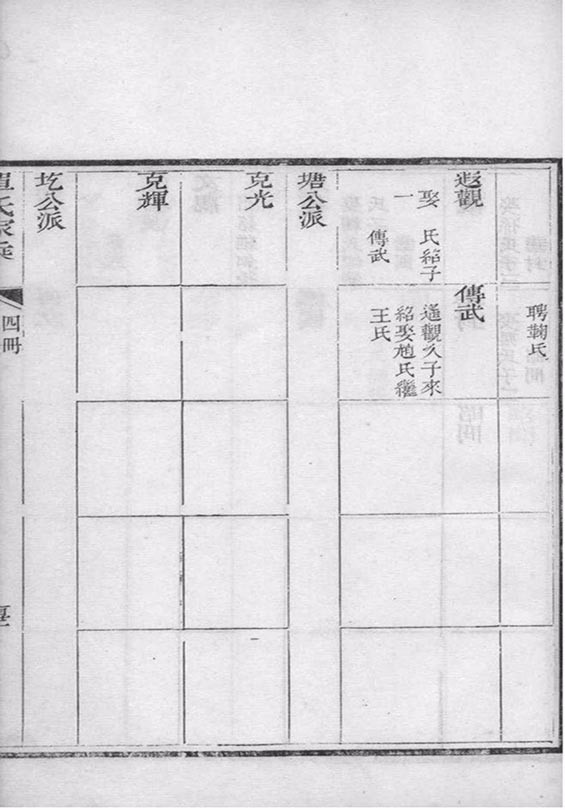 聘鞠氏
遐觀
娶 氏紹子
一 傳武
傳武
通觀次子來
紹娶趙氏繼
王氏
塘公派
克光
克輝
圪公派
氏家乘
四冊